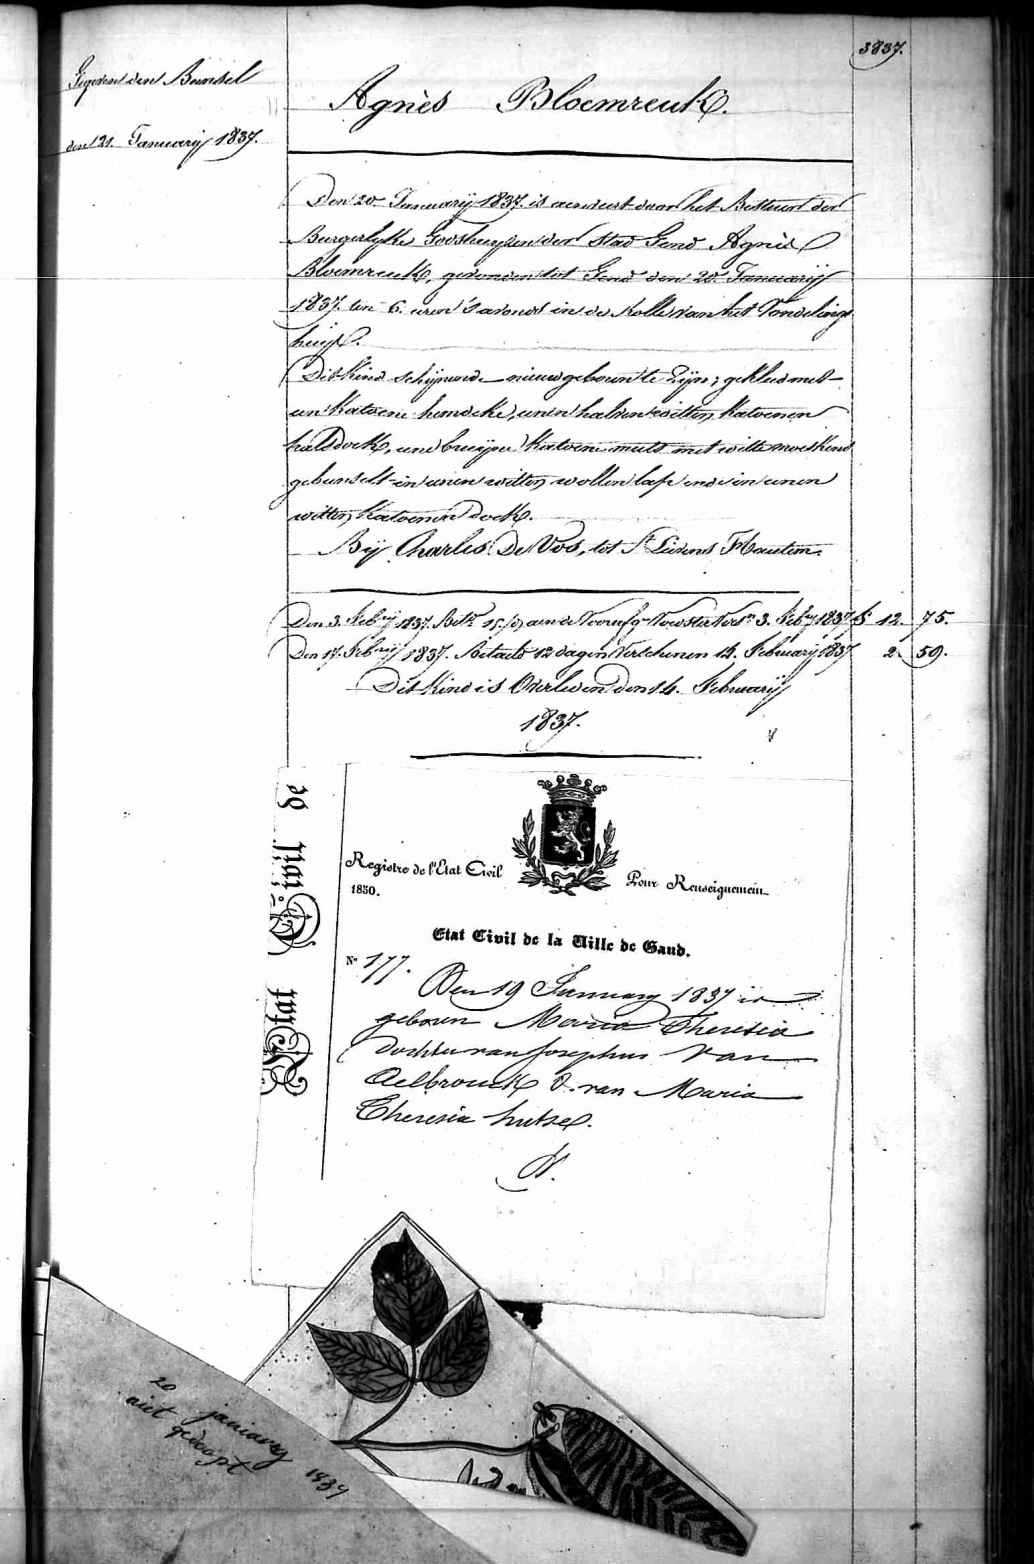 3837.
Gegeven den Bundel
den 21. Januarij 1837.
Agnès Bloemreuk.
Den 20 Januarij 1837. is aenveert door het Bestuur der
Burgerlyke Godshuyzen der Stad Gend Agnès
Bloemreuk, gevonden tot Gend den 20 Januarij
1837. ten 6. uren 's avonds in de Rolle van het Vondelings
huys.
Dit kind schynende nieuwgeboren te Zyn; gekleed met
een katoene hemdeke, eenen halven witten katoenen
halsdoek, eene bruyne katoene muts met witte
gebunselt in eenen witten wollen lap ende in eenen
witten katoenen doek.
Bij Charles De Vos, tot St Lievens Hautem.
Den 3. Febrij 1837. 15. aen de Voorsz. Voedster 3. Febrij 1837 12. 75.
Den 17. Febrij 1837. Betaeld 12 dagen Verschenen 14. February 1837 2. 59.
Dit kind is Overleden den 14. Februarij
1837.
Registre de l'Etat Civil
1830.
Pour Renseignemein
Etat Civil de la Ville de Gand.
N° 177.
Den 19 January 1837 is
geboren Maria Theresia
dochter van Josephus Van
Aelbrouck & van Maria
Theresia hutse.
20 januarij 1837
niet gedoopt